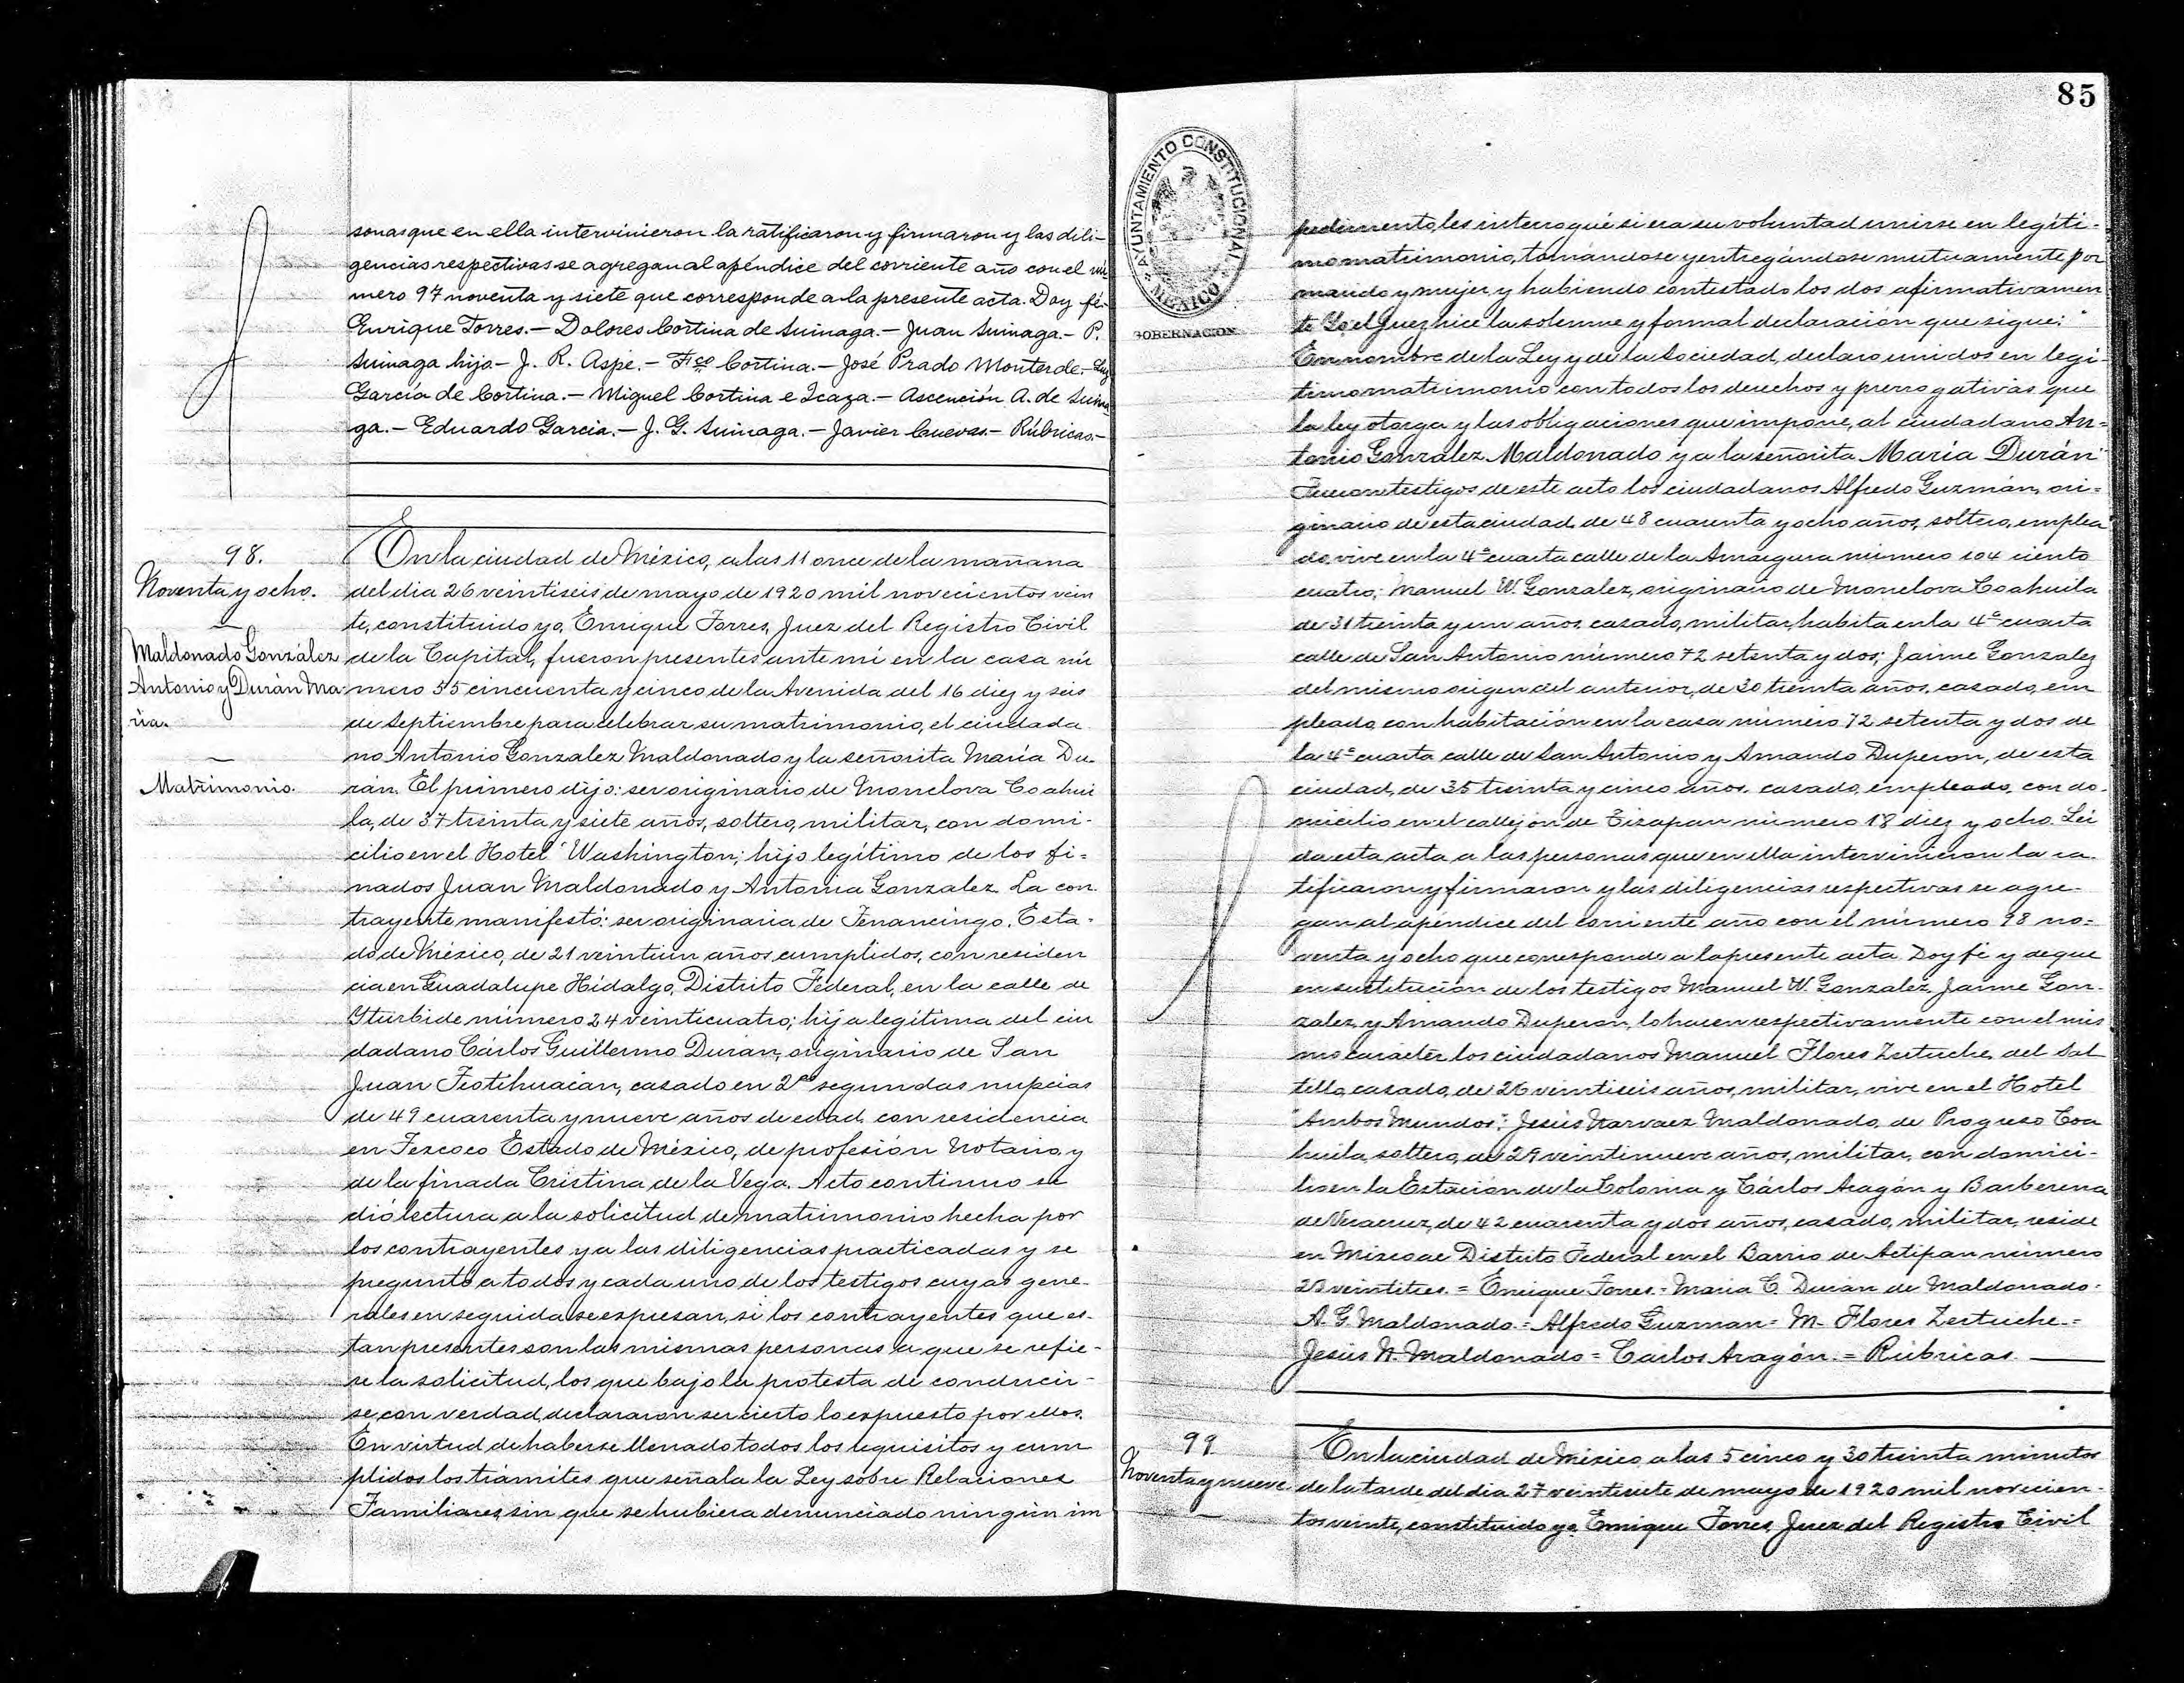 sonas que en ella intervinieron la ratificaron y firmaron y las dili-
gencias respectivas se agregan al apéndice del corriente año con el nú
mero 97 noventa y siete que corresponde a la presente acta. Doy fé.
Enrique Torres.- Dolores Cortina de Suinaga.- Juan Suinaga.- P.
Suinaga hijo- J. R. Aspe.- Fco Cortina.- José Prado Monterde.- Luz
García de Cortina.- Miguel Cortina e Icaza.- Ascención A. de Suina
ga.- Eduardo García.- J. G. Suinaga.- Javier Cuevas.- Rúbricas.-
98.
Noventa y ocho.
Maldonado González
Antonio y Durán Ma-
ría.
Matrimonio.
En la ciudad de México, a las 11 once de la mañana
del dia 26 veintiseis de mayo de 1920 mil novecientos vein
te, constituido yo, Enrique Torres, Juez del Registro Civil
de la Capital, fueron presentes ante mí en la casa nú
mero 55 cincuenta y cinco de la Avenida del 16 diez y seis
de Septiembre para celebrar su matrimonio, el ciudada
no Antonio Gonzalez Maldonado y la señorita María Du-
rán. El primero dijo: ser originario de Monclova Coahui
la, de 37 treinta y siete años, soltero, militar, con domi-
cilio en el Hotel Washington; hijo legítimo de los fi=
nados Juan Maldonado y Antonia Gonzalez. La con-
trayente manifestó: ser originaria de Tenancingo, Esta-
do de México, de 21 veintiun años cumplidos, con residen
cia en Guadalupe Hidalgo, Distrito Federal, en la calle de
Iturbide número 24 veinticuatro; hija legítima del ciu
dadano Cárlos Guillermo Duran, originario de San
Juan Teotihuacan, casado en 2as segundas nupcias
de 49 cuarenta y nueve años de edad con residencia
en Texcoco Estado de México, de profesión Notario y
de la finada Cristina de la Vega. Acto continuo se
dió lectura a la solicitud de matrimonio hecha por
los contrayentes y a las diligencias practicadas y se
preguntó a todos y cada uno de los testigos cuyas gene-
rales en seguida se expresan, si los contrayentes que es-
tan presentes son las mismas personas a que se refie-
re la solicitud, los que bajo la protesta de conducir-
se con verdad, declararon ser cierto lo expuesto por ellos.
En virtud de haberse llenado todos los requisitos y cum
plidos los trámites que señala la Ley sobre Relaciones
Familiares, sin que se hubiera denunciado ningún im
85
AYUNTAMIENTO CONSTITUCIONAL
MEXICO
GOBERNACION
pedimento, les interrogué si era su voluntad unirse en legíti-
mo matrimonio, tomándose y entregándose mutuamente por
marido y mujer y habiendo contestado los dos afirmativamen
te Yo el Juez hice la solemne y formal declaración que sigue: "
En nombre de la Ley y de la Sociedad, declaro unidos en legí-
timo matrimonio con todos los derechos y prerrogativas que
la ley otorga y las obligaciones que impone, al ciudadano An=
tonio Gonzalez Maldonado y a la señorita María Durán"
Fueron testigos de este acto los ciudadanos Alfredo Guzmán, ori=
ginario de esta ciudad, de 48 cuarenta y ocho años, soltero, emplea
do, vive en la 4a cuarta calle de la Amargura número 104 ciento
cuatro; Manuel W. Gonzalez, originario de Monclova Coahuila
de 31 treinta y un años, casado, militar, habita en la 4a cuarta
calle de San Antonio número 72 setenta y dos; Jaime Gonzalez
del mismo origen del anterior, de 30 treinta años, casado, em
pleado, con habitación en la casa número 72 setenta y dos de
la 4a cuarta calle de San Antonio y Amando Duperon, de esta
ciudad, de 35 treinta y cinco años, casado, empleado, con do-
micilio en el callejon de Tizapan número 18 diez y ocho. Lei
da esta acta a las personas que en ella intervinieron la ra-
tificaron y firmaron y las diligencias respectivas se agre-
gan al apéndice del corriente año con el número 98 no=
venta y ocho que corresponde a la presente acta. Doy fé y de que
en sustitución de los testigos Manuel W. Gonzalez, Jaime Gon-
zalez, y Amando Duperon, lo hacen respectivamente con el mis
mo carácter los ciudadanos Manuel Flores Zertuche, del Sal
tillo, casado, de 26 veintiseis años, militar, vive en el Hotel
"Ambos Mundos"; Jesús Narvaez Maldonado, de Progreso Coa
huila, soltero, de 29 veintinueve años, militar, con domici-
lio en la Estación de la Colonia y Cárlos Aragón y Barberena
de Veracruz, de 42 cuarenta y dos años, casado, militar, reside
en Mixcoac Distrito Federal en el Barrio de Actipan número
23 veintitres. = Enrique Torres. = Maria C. Duran de Maldonado.
A. G. Maldonado. = Alfredo Guzman = M. Flores Zertuche. =
Jesús N. Maldonado = Carlos Aragón. = Rúbricas.
99
Noventa y nueve
En la ciudad de México a las 5 cinco y 30 treinta minutos
de la tarde del día 27 veintisiete de mayo de 1920 mil novecien-
tos veinte, constituido yo Enrique Torres, Juez del Registro Civil